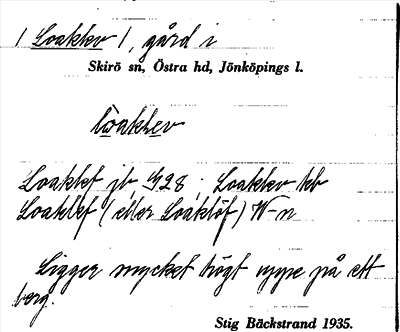 / Loaklev /, gård i
Skirö sn, Östra hd, Jönköpings l.
lòaklev
Loaklef jb, 428; Loaklev kb
Loaklef (eller Loaklöf) W-n
Ligger mycket högt uppe på ett
berg.
Stig Bäckstrand 1935.